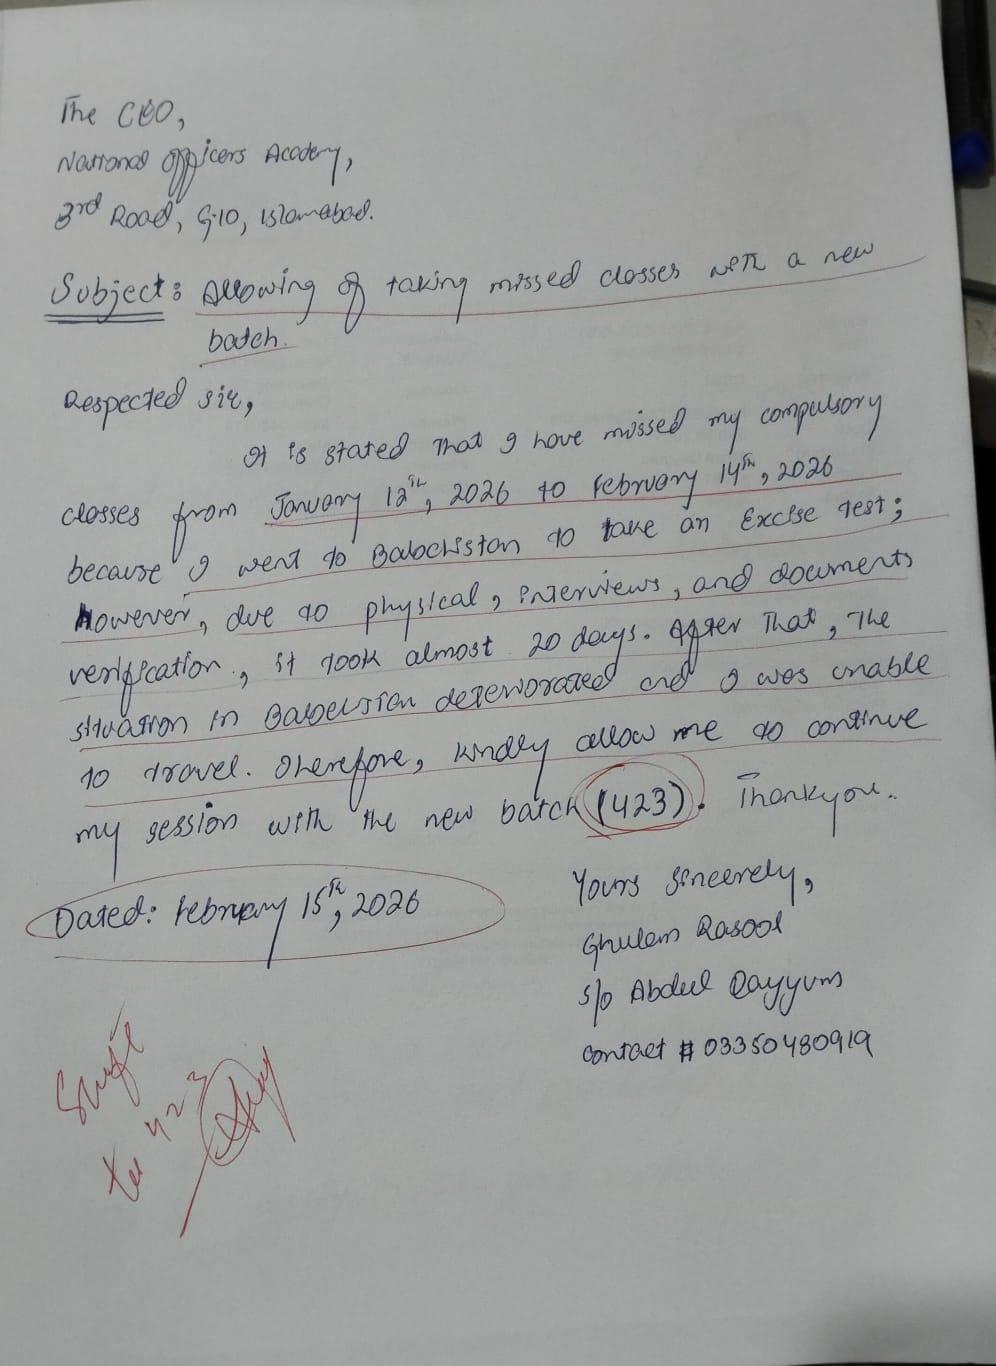 The CEO,
National Officers Academy,
3rd Road, G-10, Islamabad.
Subject: Allowing of taking missed classes with a new
batch.
Respected Sir,
It is stated that I have missed my compulsory
classes from January 12th, 2026 to February 14th, 2026
because I went to Balochistan to take an Excise test;
However, due to physical, interviews, and documents
verification, it took almost 20 days. After that, the
situation in Balochistan deteriorated and I was unable
to travel. Therefore, kindly allow me to continue
my session with the new batch (423). Thankyou.
Dated: February 15th, 2026
Yours Sincerely,
Ghulam Rasool
S/o Abdul Qayyum
Contact # 03350480919
423